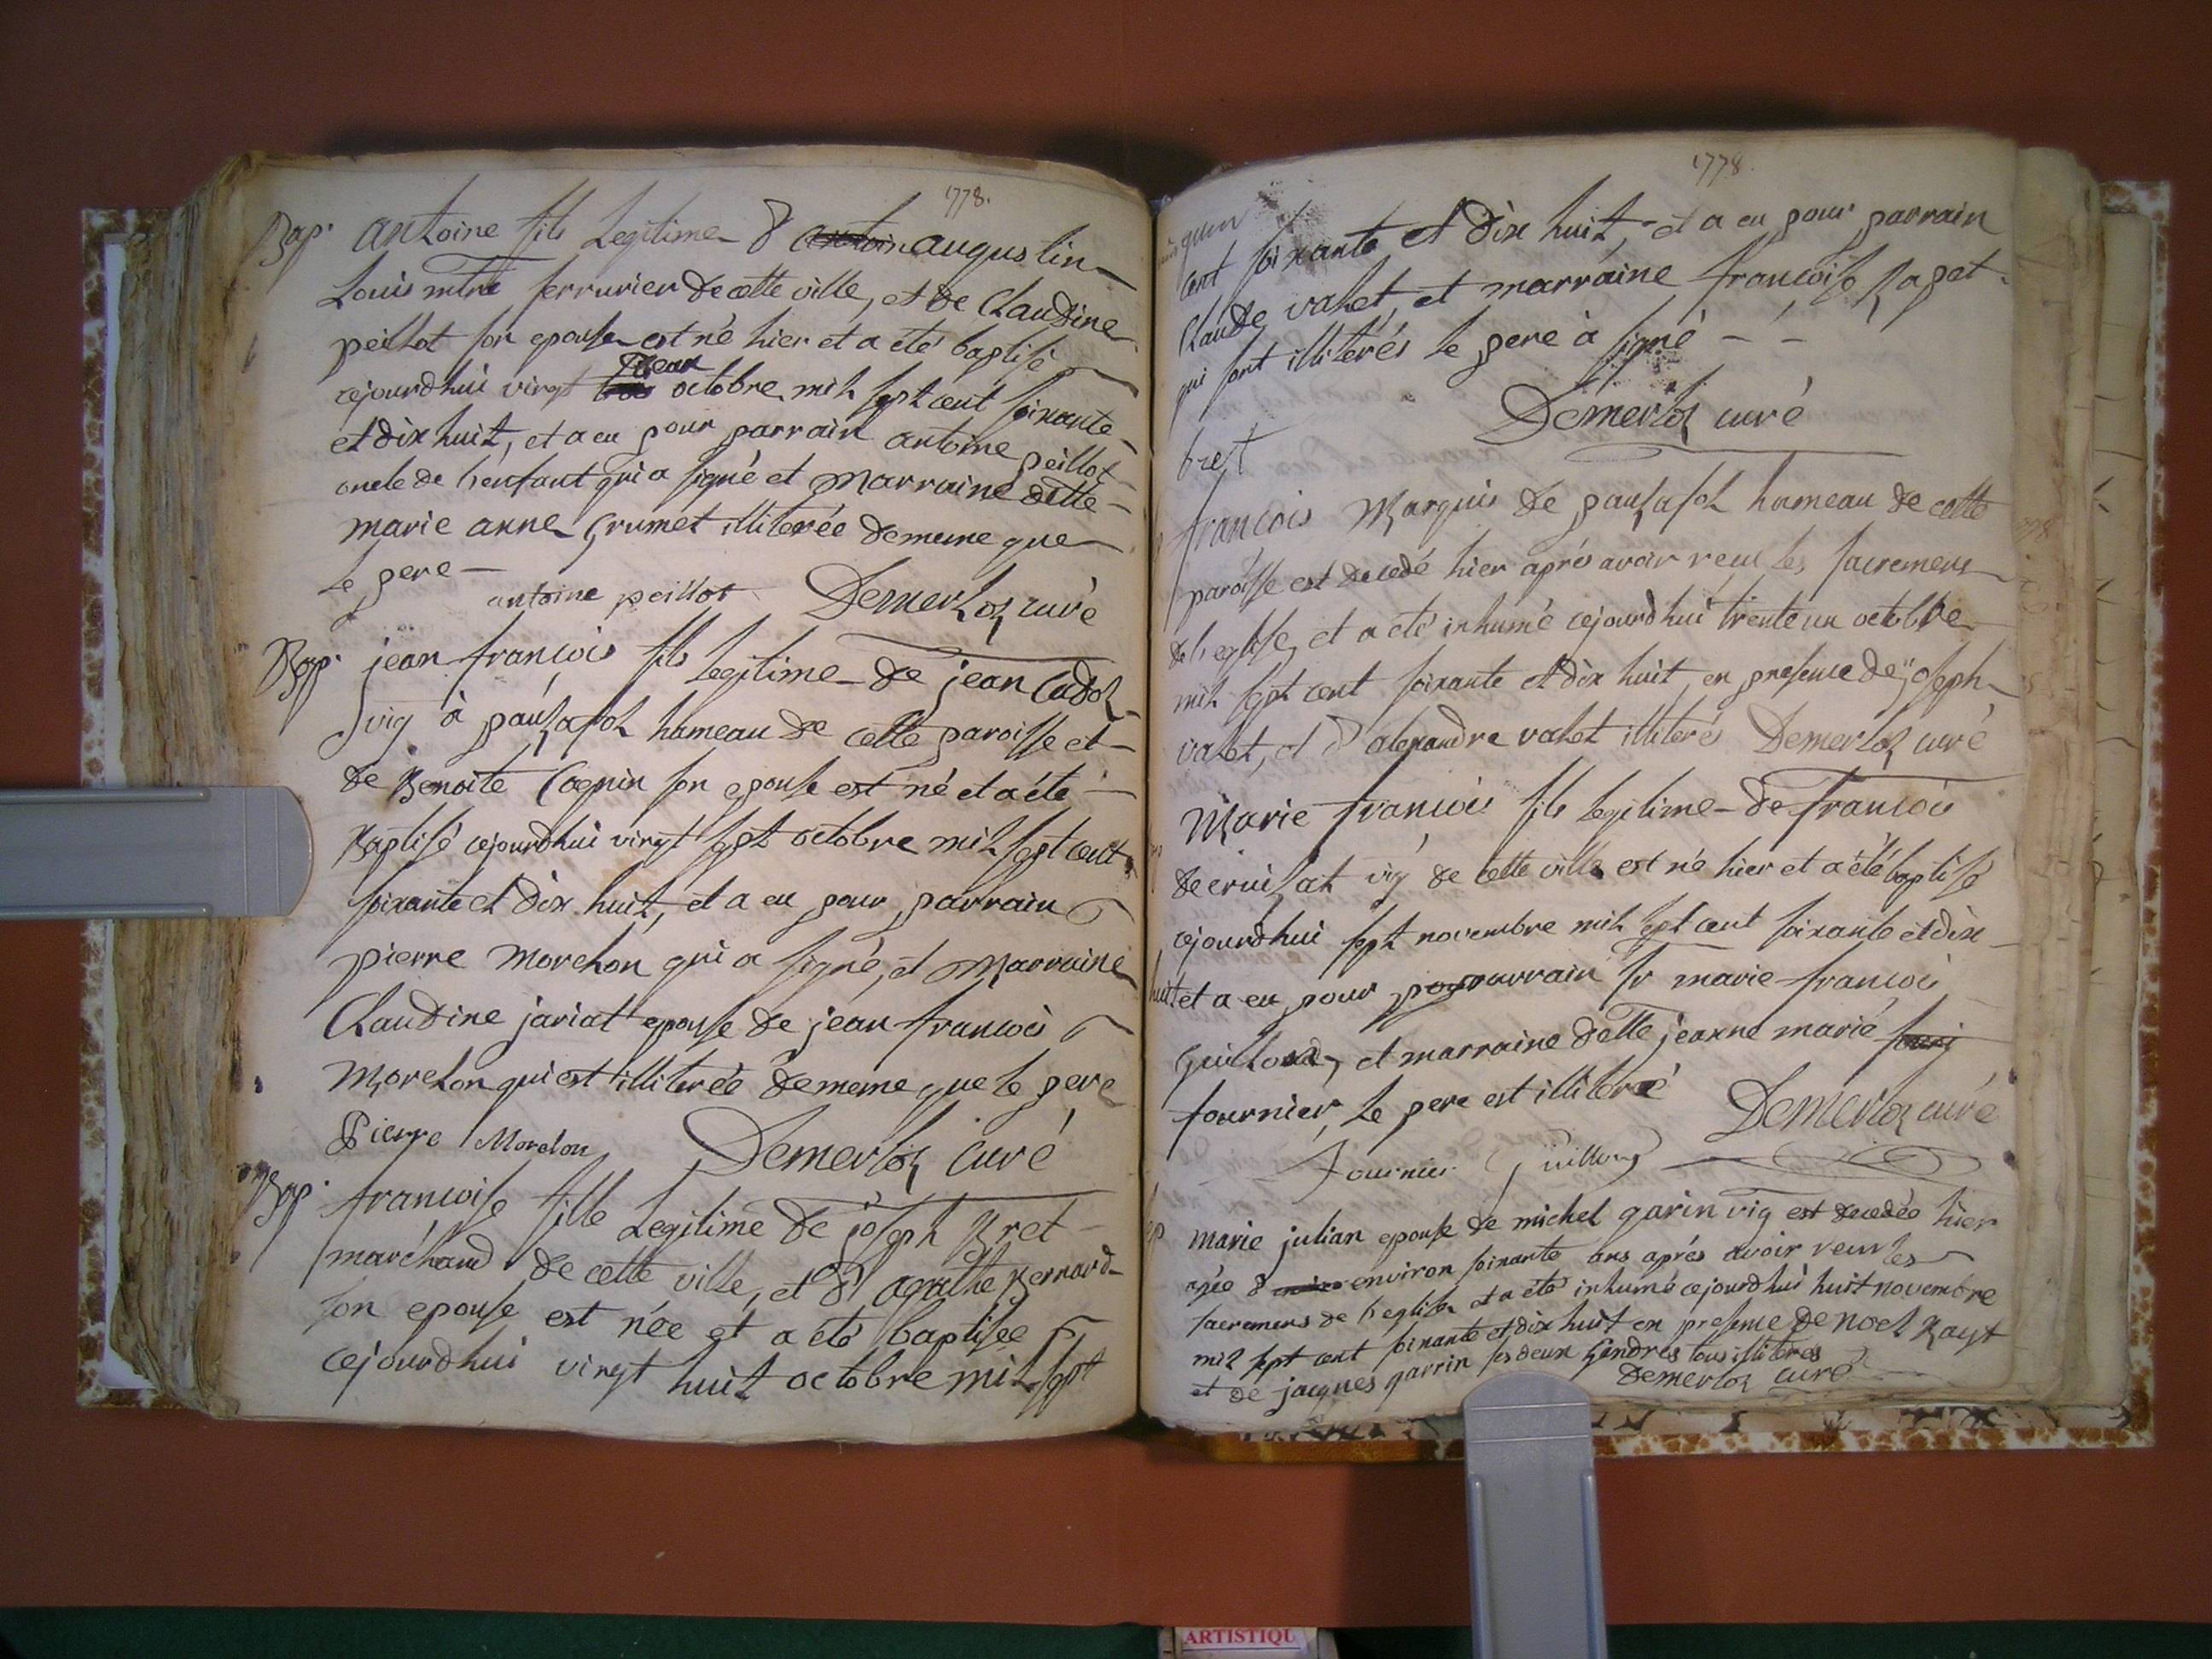 1778.
Bap. antoine fils Legitime d antoin augustin
Louis mtre serrurier de cette ville, et de Claudine
peillot son epouse est né hier et a été baptisé
cejourdhui vingt deux octobre mil sept cent soixante
et dix huit, et a eu pour parrain antoine peillot
oncle de l'enfant qui a signé et marraine delle
marie anne Grumet illiterée de meme que
le pere
antoine peillot Demerloz curé
Bap. jean françois fils Legitime de jean Cadol
vig à pauzafol hameau de cette paroisse et
de Benoite son epouse est né et a été
Baptisé cejourdhui vingt sept octobre mil sept cent
soixante et dix huit, et a eu pour parrain
pierre morelon qui a signé, et marraine
Claudine jariat epouse de jean francois
Morelon qui est illiterée de meme que le pere
Pierre Morelon Demerloz Curé
Bap. francoise fille Legitime de joseph Bret
marchand de cette ville, et d' agathe Bernard
son epouse est née et a été baptisée
cejourdhui vingt huit octobre mil sept
1778.
cent soixante et dix huit, et a eu pour parrain
Claude valet et marraine francoise
qui sont illiterés le pere à signé
Demerloz curé
bret
francois Marquis de pauzafol hameau de cette
paroisse est decedé hier aprés avoir recu les sacremens
de l'eglise, et a eté inhumé cejourdhui trente un octobre
mil sept cent soixante et dix huit en presence de joseph
valet, et d' alexandre valet illiterés Demerloz curé
Marie francois fils legitime de francois
decruisat vig de cette ville est né hier et a été baptisé
cejourdhui sept novembre mil sept cent soixante et dix
huit et a eu pour parrain sr marie francois
Guilloud, et marraine delle jeanne marie
fournier, le pere est illiteré Demerloz curé
Fournier Guilloud
marie julian epouse de michel garin vig est decedée hier
agée d environ soixante ans aprés avoir recu les
sacremens de l'eglise et a été inhumé cejourdhui huit novembre
mil sept cent soixante et dix huit en presence de noel Rayt
et de jacques garrin ses deux Gendres tous illiterés
Demerloz curé
ARTISTIQU